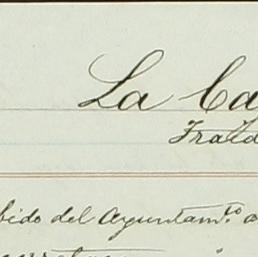 La Ca
Trald
bido del Ayuntamto a